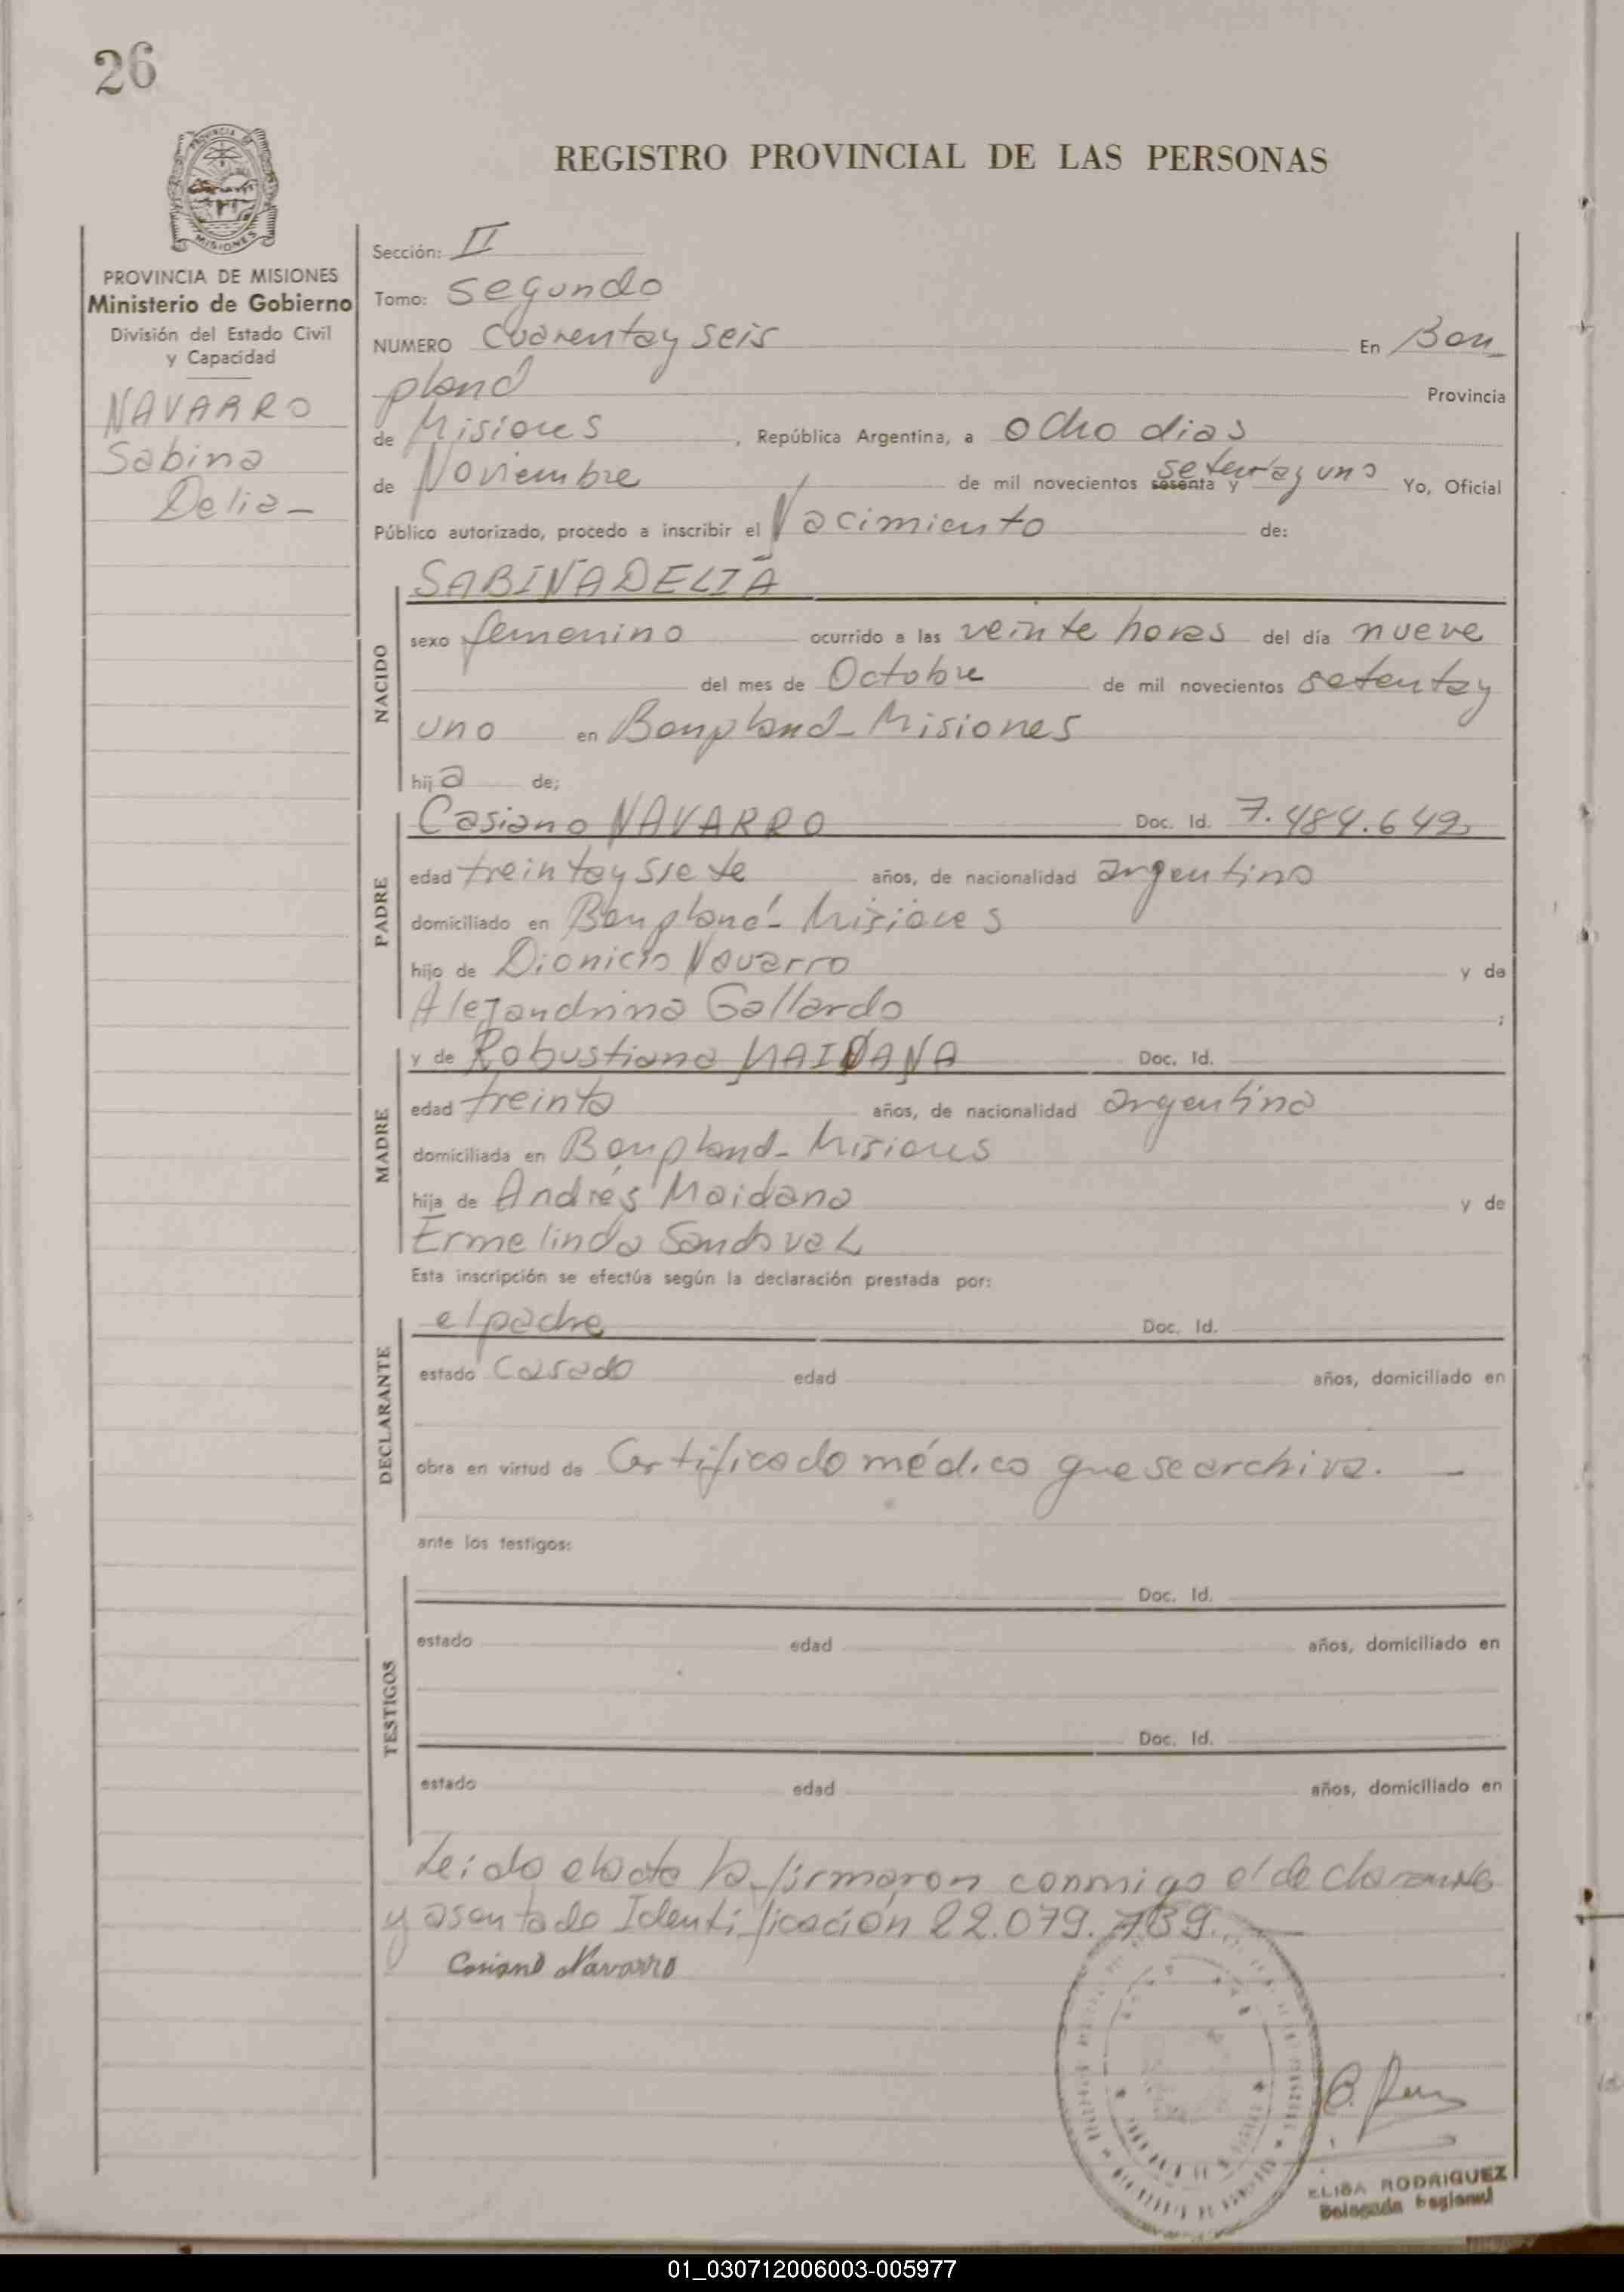 26
REGISTRO PROVINCIAL DE LAS PERSONAS
PROVINCIA DE
MISIONES
PROVINCIA DE MISIONES
Ministerio de Gobierno
División del Estado Civil
y Capacidad
NAVARRO
Sabina
Delia -
Sección: II
Tomo: Segundo
NUMERO Cuarenta y seis En Bon_
pland Provincia
de Misiones, República Argentina, a ocho dias
de Noviembre de mil novecientos sesenta y setenta y uno Yo, Oficial
Público autorizado, procedo a inscribir el Nacimiento de:
SABINA DELIA
NACIDO
sexo femenino ocurrido a las veinte horas del día nueve
del mes de Octobre de mil novecientos setenta y
uno en Bonpland - Misiones
hija de;
PADRE
Casiano NAVARRO Doc. Id. 7.484.642
edad treinta y siete años, de nacionalidad argentino
domiciliado en Bonpland - Misiones
hijo de Dionicio Navarro y de
Alejandrina Gallardo ;
MADRE
y de Robustiana MAIDANA Doc. Id.
edad treinta años, de nacionalidad argentina
domiciliada en Bonpland - Misiones
hija de Andrés Maidana y de
Ermelinda Sandoval
Esta inscripción se efectúa según la declaración prestada por:
DECLARANTE
el padre Doc. Id.
estado Casado edad años, domiciliado en
obra en virtud de Certificado médico que se archiva. -
ante los testigos:
TESTIGOS
Doc. Id.
estado edad años, domiciliado en
Doc. Id.
estado edad años, domiciliado en
Leido el acta la firmaron conmigo el declarante
y asentado Identificación 22.079.789. -
Casiano Navarro
ELISA RODRIGUEZ
Delegada Regional
01_030712006003-005977